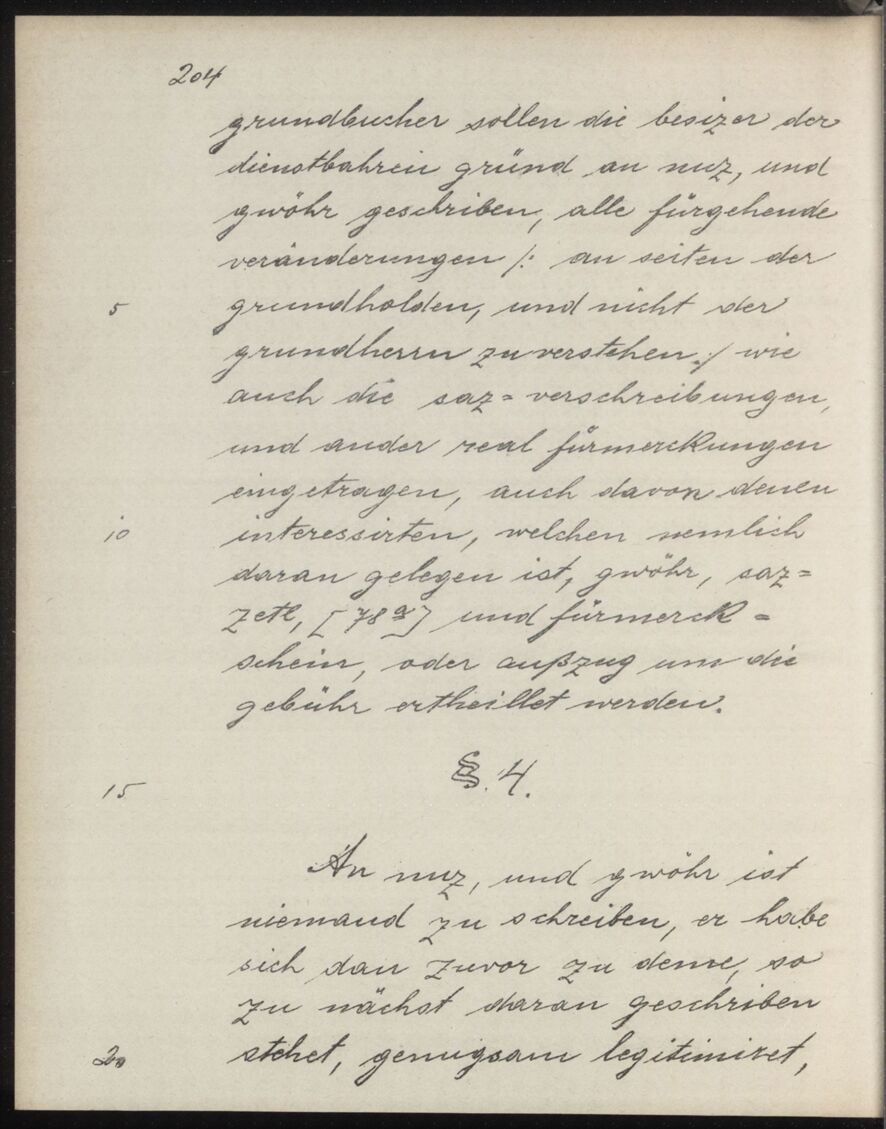 204
grundbucher sollen die besizer der
dienstbahren gründ an nuz, und
gwöhr geschriben, alle fürgehende
veränderungen /: an seiten der
5 grundholden, und nicht der
grundherrn zu verstehen :/ wie
auch die saz= verschreibungen,
und ander real fürmerckungen
eingetragen, auch davon denen
10 interessirten, welchen nemlich
daran gelegen ist, gwöhr, saz=
zetl, [78a] und fürmerck=
schein, oder außzug um die
gebühr ertheillet werden.
15 §. 4.
An nuz, und gwöhr ist
niemand zu schreiben, er habe
sich dan zuvor zu deme, so
zu nächst daran geschriben
20 stehet, genugsam legitimiret,